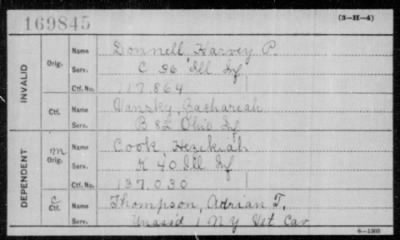 169845 (3-H-4)
INVALID
Orig. Name Donnell, Harvey P.
Serv. C 36 Ill Inf
Ctf. No. 117,864
Ctf. Name Vansky, Zachariah
Serv. B 82 Ohio Inf
DEPENDENT
m Orig. Name Cook Hezekiah
Serv. K 40 Ill Inf
Ctf. No. 137,030
C Ctf. Name Thompson, Adrian T.
Serv. Unassd 1 NY Vet Cav